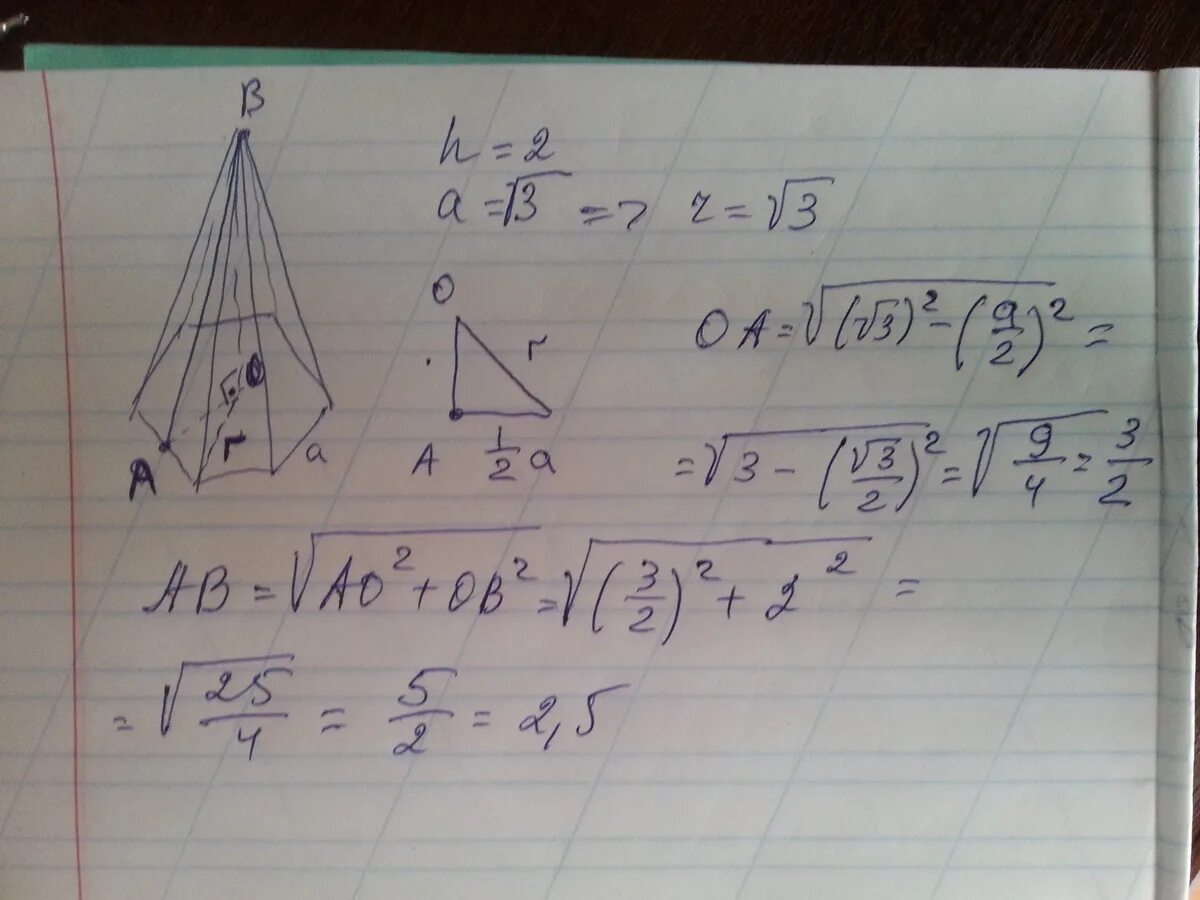 B
h = 2
a = √3 => r = √3
O
r
A
1/2 a
O
A
r
a
OA = √((√3)² - (a/2)²) =
= √(3 - (√3/2)²) = √(9/4) = 3/2
AB = √(AO² + OB²) = √((3/2)² + 2²) =
= √(25/4) = 5/2 = 2,5